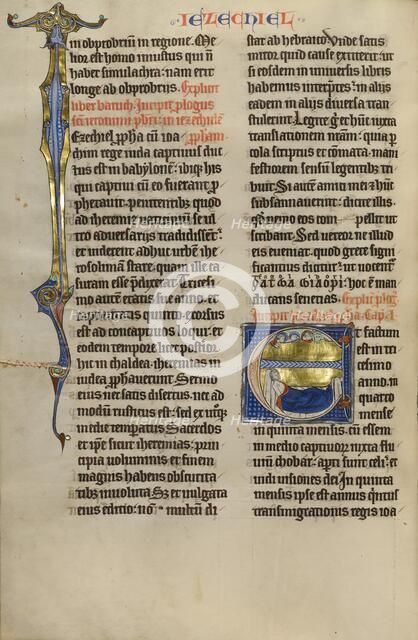 IEZECHIEL
in obprobrium in regione. Me
hor est homo iustus qui n
haber simulachra: nam erit
longe ab obprobriis. Explicit
liber baruch. Incipit plogus
sci ieronimi pbri in iezechiele
Ezechiel ppha cu ioa pham
chim rege iuda captiuus duc
tus est in babylone: ibiq; his
qui captiui cu eo fuerant p
phetauit penitentibus quod
ad iheremie uaticiniu se ul
tro aduersarijs tradidissent:
et uiderent adhuc urbem ihe
rosolimam stare quam ille ca
suram esse pdixerat. Tricesi
mo autem etatis sue anno et
captiuitatis quinto exorsus
est ad concaptiuos loqui. et
eodem tempore licet posterior
hic in chaldea iheremias in
iudea pphauerunt. Sermo
eius nec satis disertus. nec ad
modum rusticus est: sed ex utroq;
medie temperatus. Sacerdos
et ipse sicut iheremias: prin
cipia uoluminis et finem
magnis habens obscurita
tibus inuoluta. Sz et uulgata
eius editio: non multum di
stat ab hebraico. Unde satis
miror quid cause extiterit: ut
si eosdem in uniuersis libris
habemus interpretes: in alijs
eadem in alijs diuersa trans
tulerint. Legite g et hunc iuxta
translationem nram: quia p
cola scriptus et comata. mani
festiorem sensum legentibus tri
buit. Si autem amici mei et hunc
subsannauerint: dicite illis.
q nemo eos com pellit ut
scribant. Sed uereor ne illud
eis eueniat. quod grece signi
ficantius dicitur: ut uocentur
hoc e man
ducans senecias. Explicit plog
Incipit Cap. I
Et factum
est in tri
cesimo
anno. in
quarto
mense
in quinta mensis. cu essem
in medio captiuor iuxta flu
uiu chobar: aperti sunt celi: et
uidi uisiones dei. In quinta
mensis ipse est annus quintus
transmigrationis regis ioa
Heritage
Heritage
Heritage
Heritage